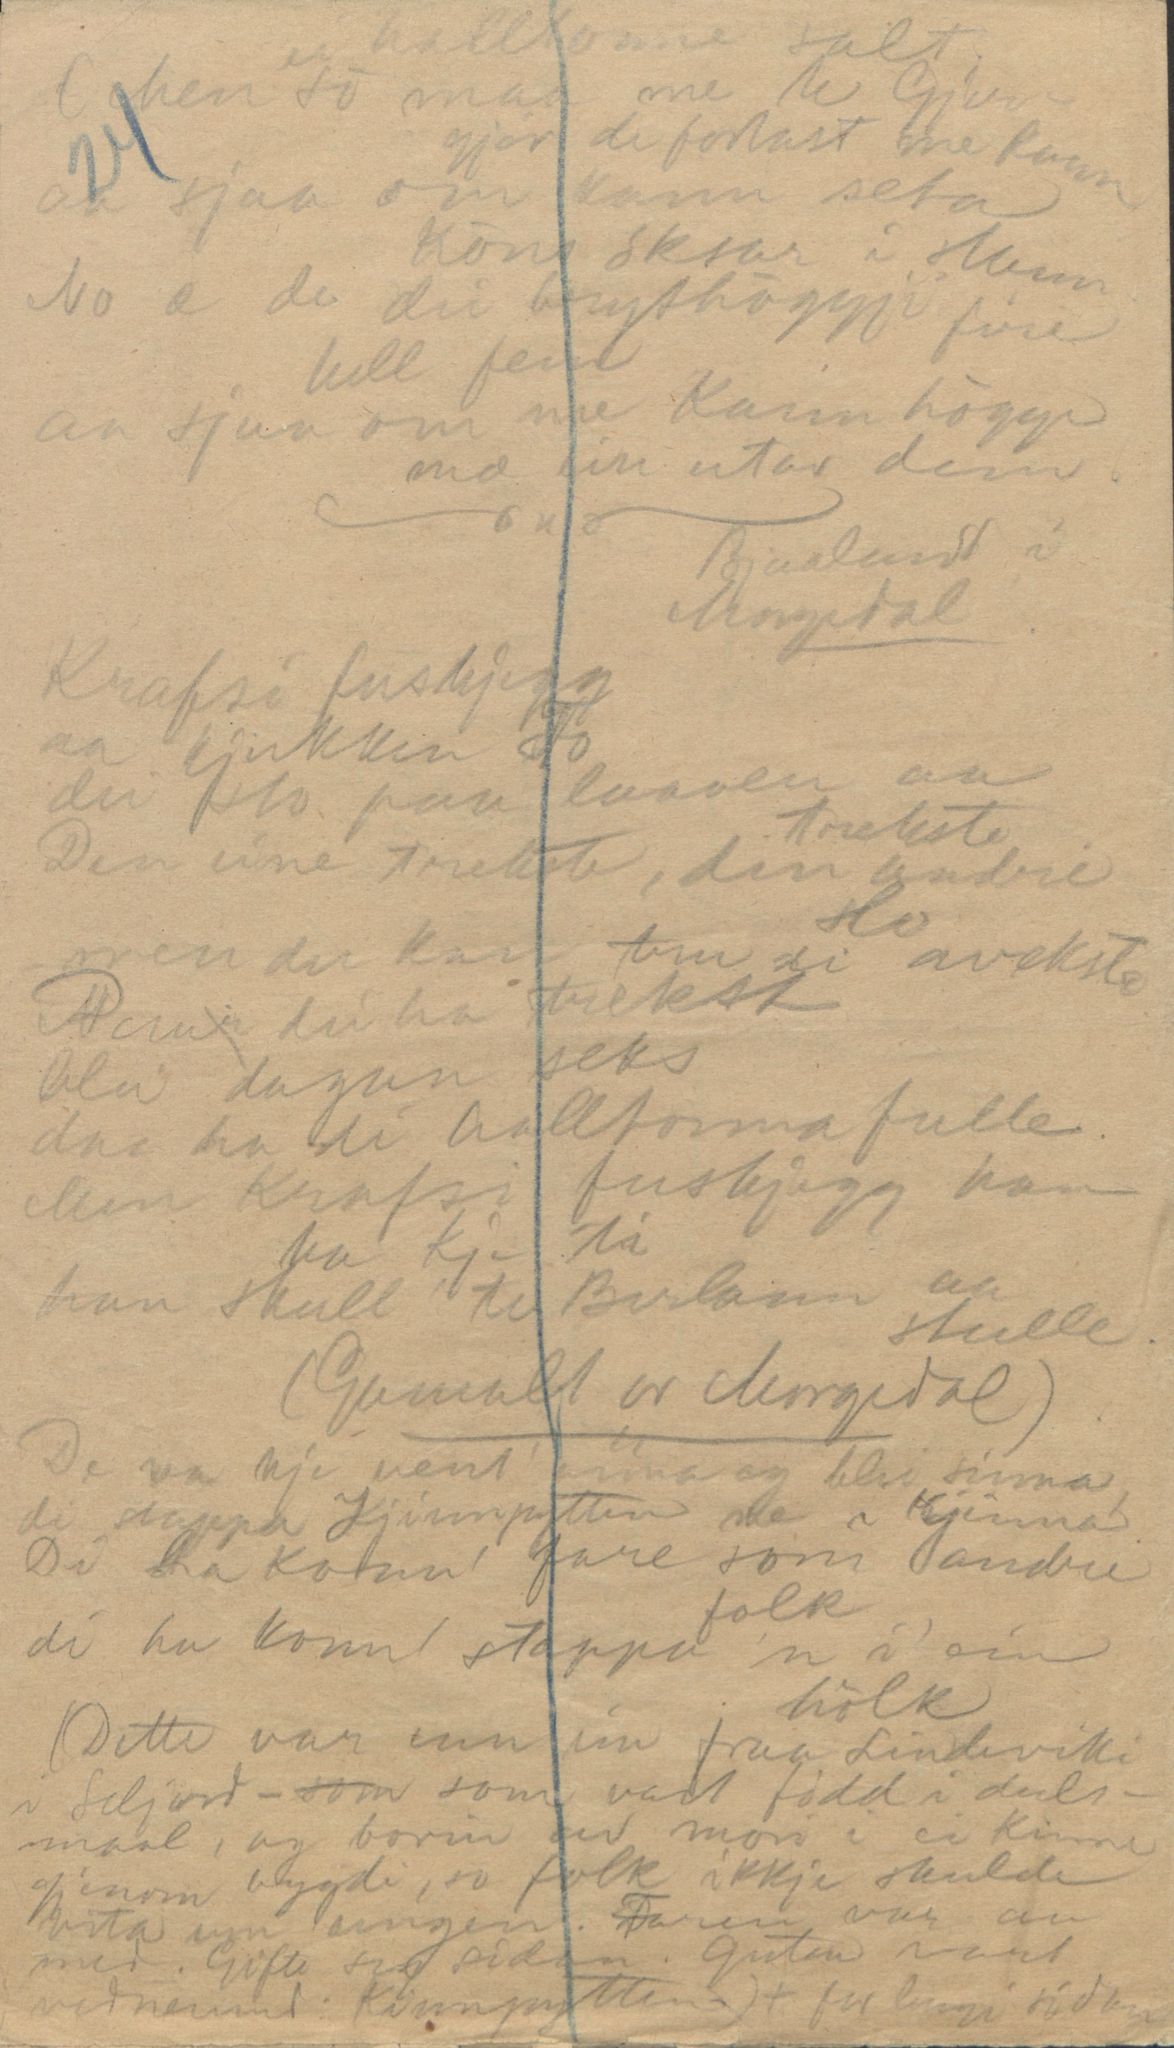 ei halltonne salt.
24
hen so maa me te Gjere
gjer de fortast me kunn
aa sjaa om kann seta
Köni öksar i Mun
No æ de di brythöggji före
till fem
aa sjaa om me kann högge
mæ ein utav dem.
Bjaaland i
Morgedal
Krafsi fuskjegg
aa kjukken To
di sto paa laaven aa
trekste
Den eine trekste, den andre
slo
men du kan tru di avekste
di ha trekst
blei dagan seks
daa ha di halltonna fulle.
Men Krafsi fuskjegg han
ha kje ti
han skull te Borlaun aa
stulle.
(Gamalt or Morgedal)
De va kje vent aa bli sinna,
di stappa Kjinnpytten ne i Kjinna
Di ha konn' fare som andre
folk
di ha konn' stappa 'n i ein
hólk
(Dette var um ein fraa Lindeviki
i Seljord - som vart född i duls-
maal, og borin av mori i ei kinne
gjenom bygdi, so folk ikkje skulde
vita um ungen. Faren var au
med. Gifte seg sidan. Guten vart
vednemnd: Kinnpytten -) + for lengi sidan